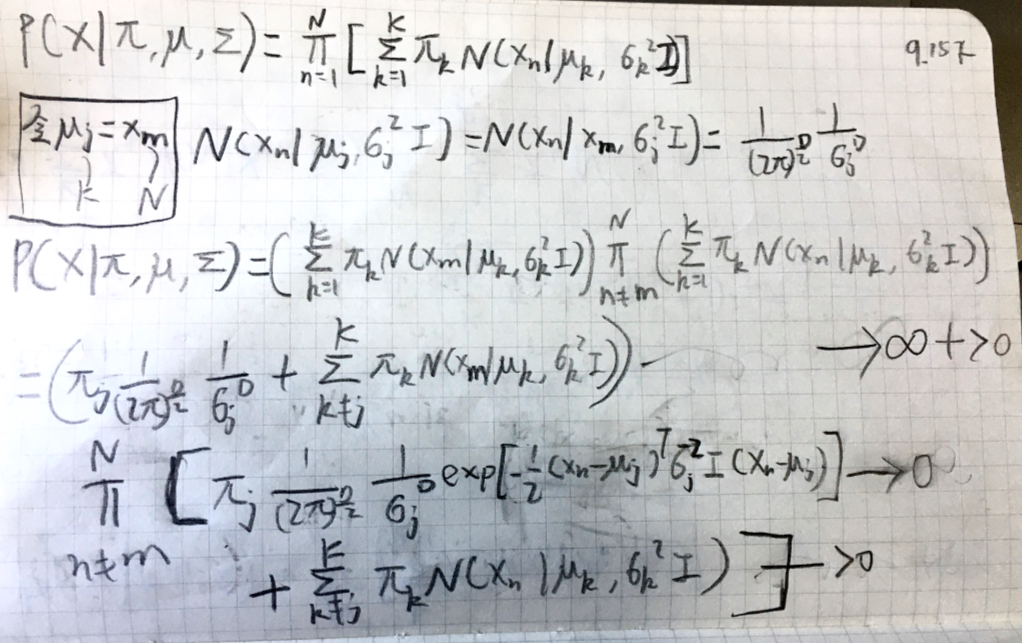 P(X|π, μ, Σ) = ∏_{n=1}^{N} [ Σ_{k=1}^{K} π_k N(x_n|μ_k, σ_k² I) ] 9.15节
令 μ_j = x_m N(x_n|μ_j, σ_j² I) = N(x_n|x_m, σ_j² I) = 1/(2π)^{D/2} 1/σ_j^D
K N
P(X|π, μ, Σ) = ( Σ_{k=1}^{K} π_k N(x_m|μ_k, σ_k² I) ) ∏_{n≠m}^{N} ( Σ_{k=1}^{K} π_k N(x_n|μ_k, σ_k² I) )
= ( π_j 1/(2π)^{D/2} 1/σ_j^D + Σ_{k≠j}^{K} π_k N(x_m|μ_k, σ_k² I) ) · → ∞ + >0
∏_{n≠m}^{N} [ π_j 1/(2π)^{D/2} 1/σ_j^D exp[-1/2 (x_n-μ_j)^T σ_j^{-2} I (x_n-μ_j)] → 0
+ Σ_{k≠j}^{K} π_k N(x_n|μ_k, σ_k² I) ) ] → >0